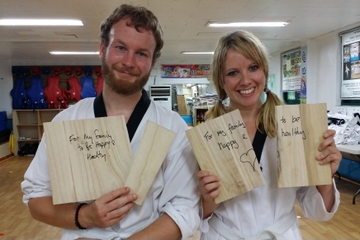 For my family
to be Happy &
Healthy!
For my family
Happy &
to be
healthy